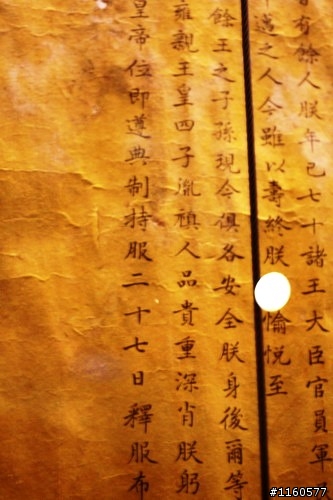 有餘人朕年已七十諸王大臣官員軍
邁之人今雖以壽終朕愉悅至
餘王之子孫現今俱各安全朕身後爾等
雍親王皇四子胤禛人品貴重深肖朕躬
皇帝位即遵典制持服二十七日釋服布
#1160577